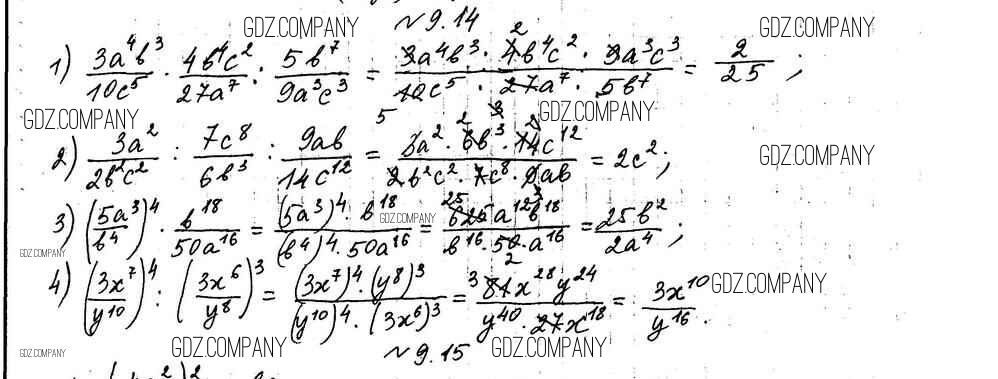 GDZ.COMPANY № 9.14 GDZ.COMPANY
1) 3a⁴b³/10c⁵ · 4b⁴c²/27a⁷ : 5b⁷/9a³c³ = 3a⁴b³ · 4b⁴c² · 9a³c³/10c⁵ · 27a⁷ · 5b⁷ = 2/25 ;
GDZ.COMPANY GDZ.COMPANY
2) 3a²/2b²c² : 7c⁸/6b³ : 9ab/14c¹² = 3a² · 6b³ · 14c¹²/2b²c² · 7c⁸ · 9ab = 2c² ; GDZ.COMPANY
3) (5a³/b⁴)⁴ · b¹⁸/50a¹⁶ = (5a³)⁴ · b¹⁸/(b⁴)⁴ · 50a¹⁶ = 625a¹²b¹⁸/b¹⁶ · 50 · a¹⁶ = 25b²/2a⁴ ;
GDZ.COMPANY
GDZ.COMPANY
4) (3x⁷/y¹⁰)⁴ : (3x⁶/y⁸)³ = (3x⁷)⁴ · (y⁸)³/(y¹⁰)⁴ · (3x⁶)³ = 81x²⁸y²⁴/y⁴⁰ · 27x¹⁸ = 3x¹⁰/y¹⁶ . GDZ.COMPANY
GDZ.COMPANY GDZ.COMPANY № 9.15 GDZ.COMPANY